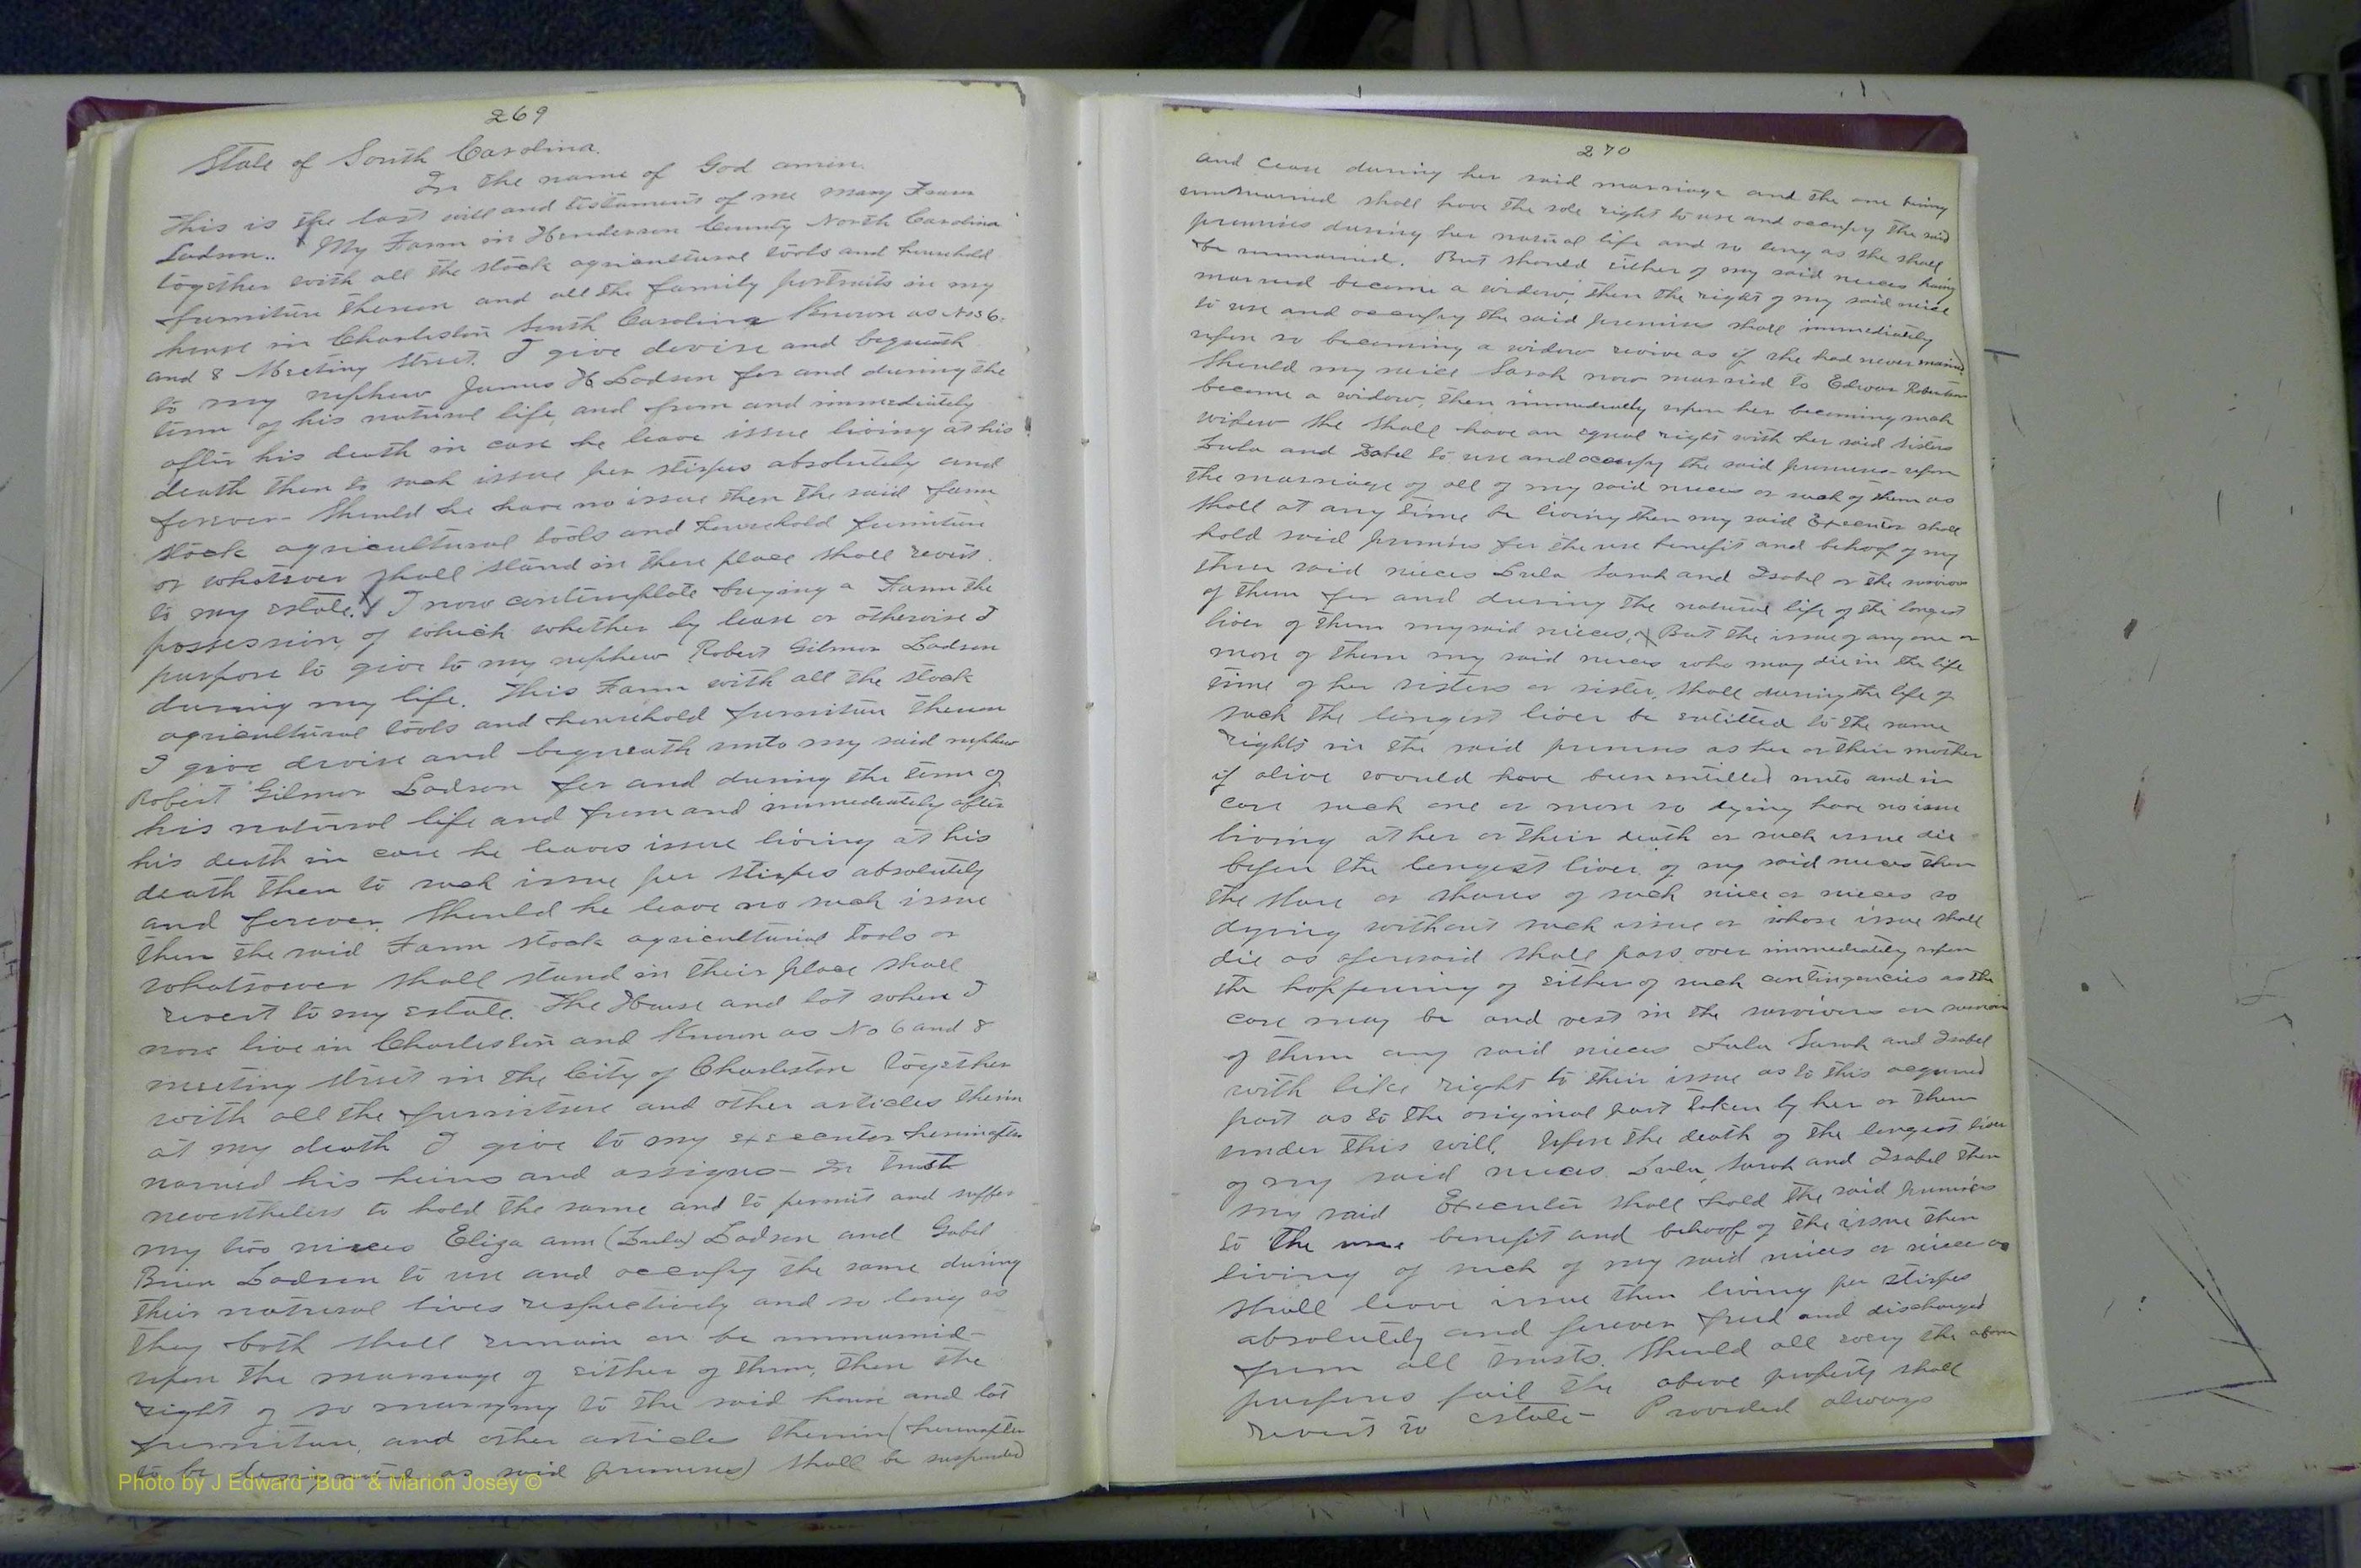 269
State of South Carolina.
In the name of God amen.
This is the last will and testament of me Mary Fauna
Ladson.. My Farm in Henderson County North Carolina
together with all the stock agricultural tools and household
furniture thereon and all the family portraits in my
house in Charleston South Carolina Known as Nos 6.
and 8 Meeting Street. I give devise and bequeath
to my nephew James H Ladson for and during the
term of his natural life, and from and immediately
after his death in case he leave issue living at his
death then to such issue per stirpes absolutely and
forever– Should he have no issue then the said farm
stock agricultural tools and household furniture
or whatever shall stand in there place shall revert
to my estate. I now contemplate buying a Farm the
possession, of which whether by lease or otherwise I
purpose to give to my nephew Robert Gilmor Ladson
during my life. This Farm with all the stock
agricultural tools and household furniture thereon
I give devise and bequeath unto my said nephew
Robert Gilmor Ladson for and during the term of
his natural life and from and immediately after
his death in case he leaves issue living at his
death then to such issue per stirpes absolutely
and forever. Should he leave no such issue
then the said Farm stock agricultural tools or
whatsoever shall stand in their place shall
revert to my estate. The House and lot where I
now live in Charleston and Known as No 6 and 8
meeting street in the City of Charleston together
with all the furniture and other articles therin
at my death I give to my executor hereinafter
named his heirs and assigns– In trust
nevertheless to hold the same and to permit and suffer
my two nieces Eliza ann (Lula) Ladson and Isabel
Brien Ladson to use and occupy the same during
their natural lives respectively and so long as
they both shall remain or be unmarried–
upon the marriage of either of them, then the
right of so marrying to the said house and lot
furniture, and other article therein (hereinafter
to be designated as said premises) shall be suspended
Photo by J Edward "Bud" & Marion Josey ©
270
and cease during her said marriage and the one being
unmarried shall have the sole right to use and occupy the said
premises during her natural life and so long as she shall
be unmarried. But should either of my said nieces having
married become a widow, then the right of my said niece
to use and occupy the said premises shall immediately
upon so becoming a widow revive as if she had never married
Should my niece Sarah now married to Edwar Robertson
become a widow, then immediately upon her becoming such
widow she shall have an equal right with her said sisters
Lula and Isabel to use and occupy the said premises– upon
the marriage of all of my said nieces or such of them as
shall at any time be living then my said Executor shall
hold said premises for the use benefit and behoof of my
three said nieces Lula Sarah and Isabel or the survivor
of them for and during the natural life of the longest
liver of them my said nieces, But the issue of any one or
more of them my said nieces who may die in the life
time of her sisters or sister, shall during the life of
such the longest liver be entitled to the same
rights in the said premises as her or their mother
if alive would have been entitled unto and in
case such one or more so dying have no issue
living at her or their death or such issue die
before the longest liver of my said nieces then
the share or shares of such niece or nieces so
dying without such issue or whose issue shall
die as aforesaid shall pass over immediately upon
the happening of either of such contingencies as the
case may be and vest in the survivors or survivor
of them my said nieces Lula Sarah and Isabel
with like right to their issue as to this acquired
part as to the original part taken by her or them
under this will. Upon the death of the longest liver
of my said nieces Lula, Sarah and Isabel then
my said Executor shall hold the said premises
to the use benefit and behoof of the issue then
living of such of my said nieces or niece as
shall leave issue then living per stirpes
absolutely and forever freed and discharged
from all trusts. Should all every the above
purposes fail the above property shall
revert to estate– Provided always